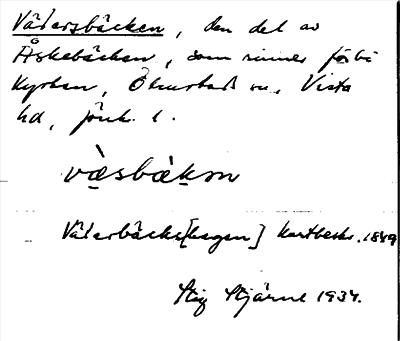 Vädersbäcken, den del av
Åskebäcken, som rinner förbi
kyrkan, Ölmstad sn, Vista
hd, Jönk. l.
væ̀sbækɐn
Väderbäcks[hagen] Kartbeskr. 1849
Stig Stjärne 1934.